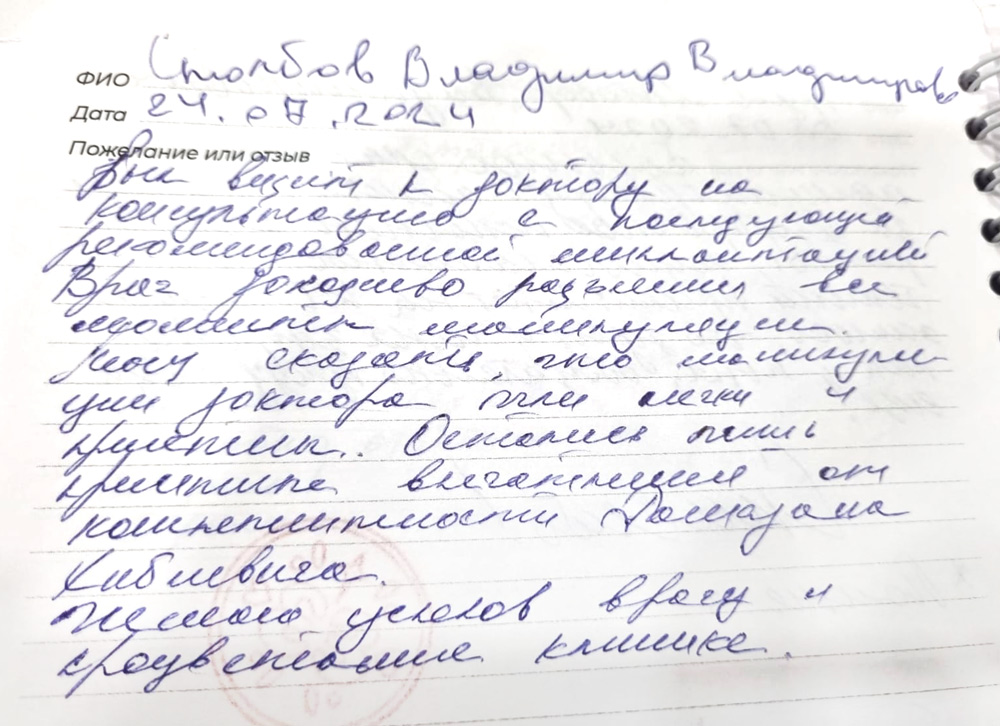 ФИО Столбов Владимир Владимирович
Дата 24.07.2024
Пожелание или отзыв
Был визит к доктору на
консультацию с последующей
рекомендованной имплантацией
Врач доходчиво разъяснил все
моменты манипуляции.
Могу сказать, что манипуля-
ции доктора были легки и
приятны. Остались лишь
приятные впечатления от
компетентности Рамазана
Хибиевича.
Желаю успехов врачу и
процветание клинике.